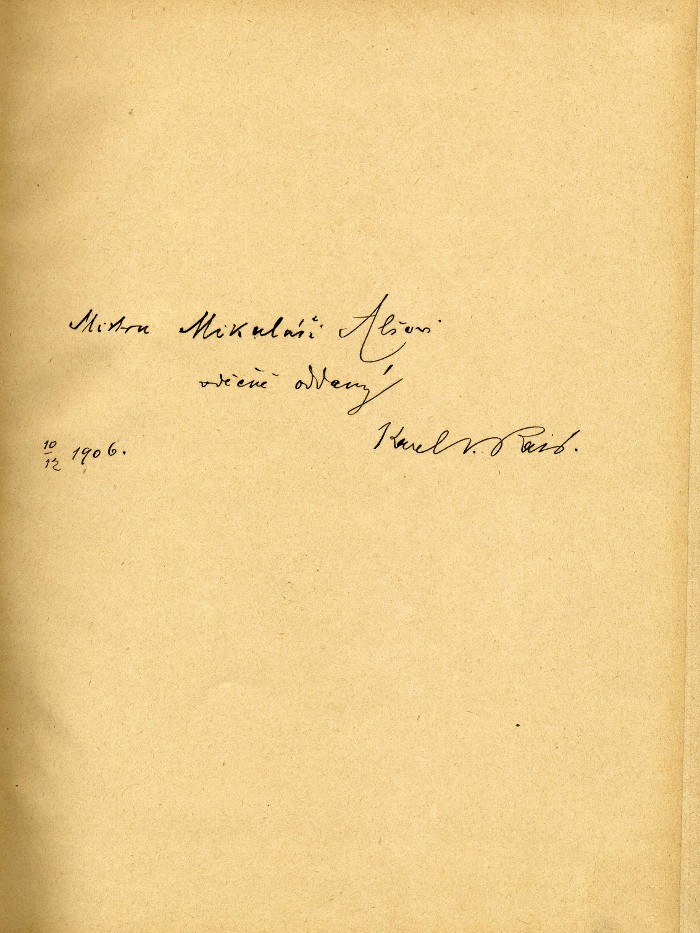 Mistru Mikuláši Alšovi
vděčně oddaný
Karel V. Rais.
10/12 1906.